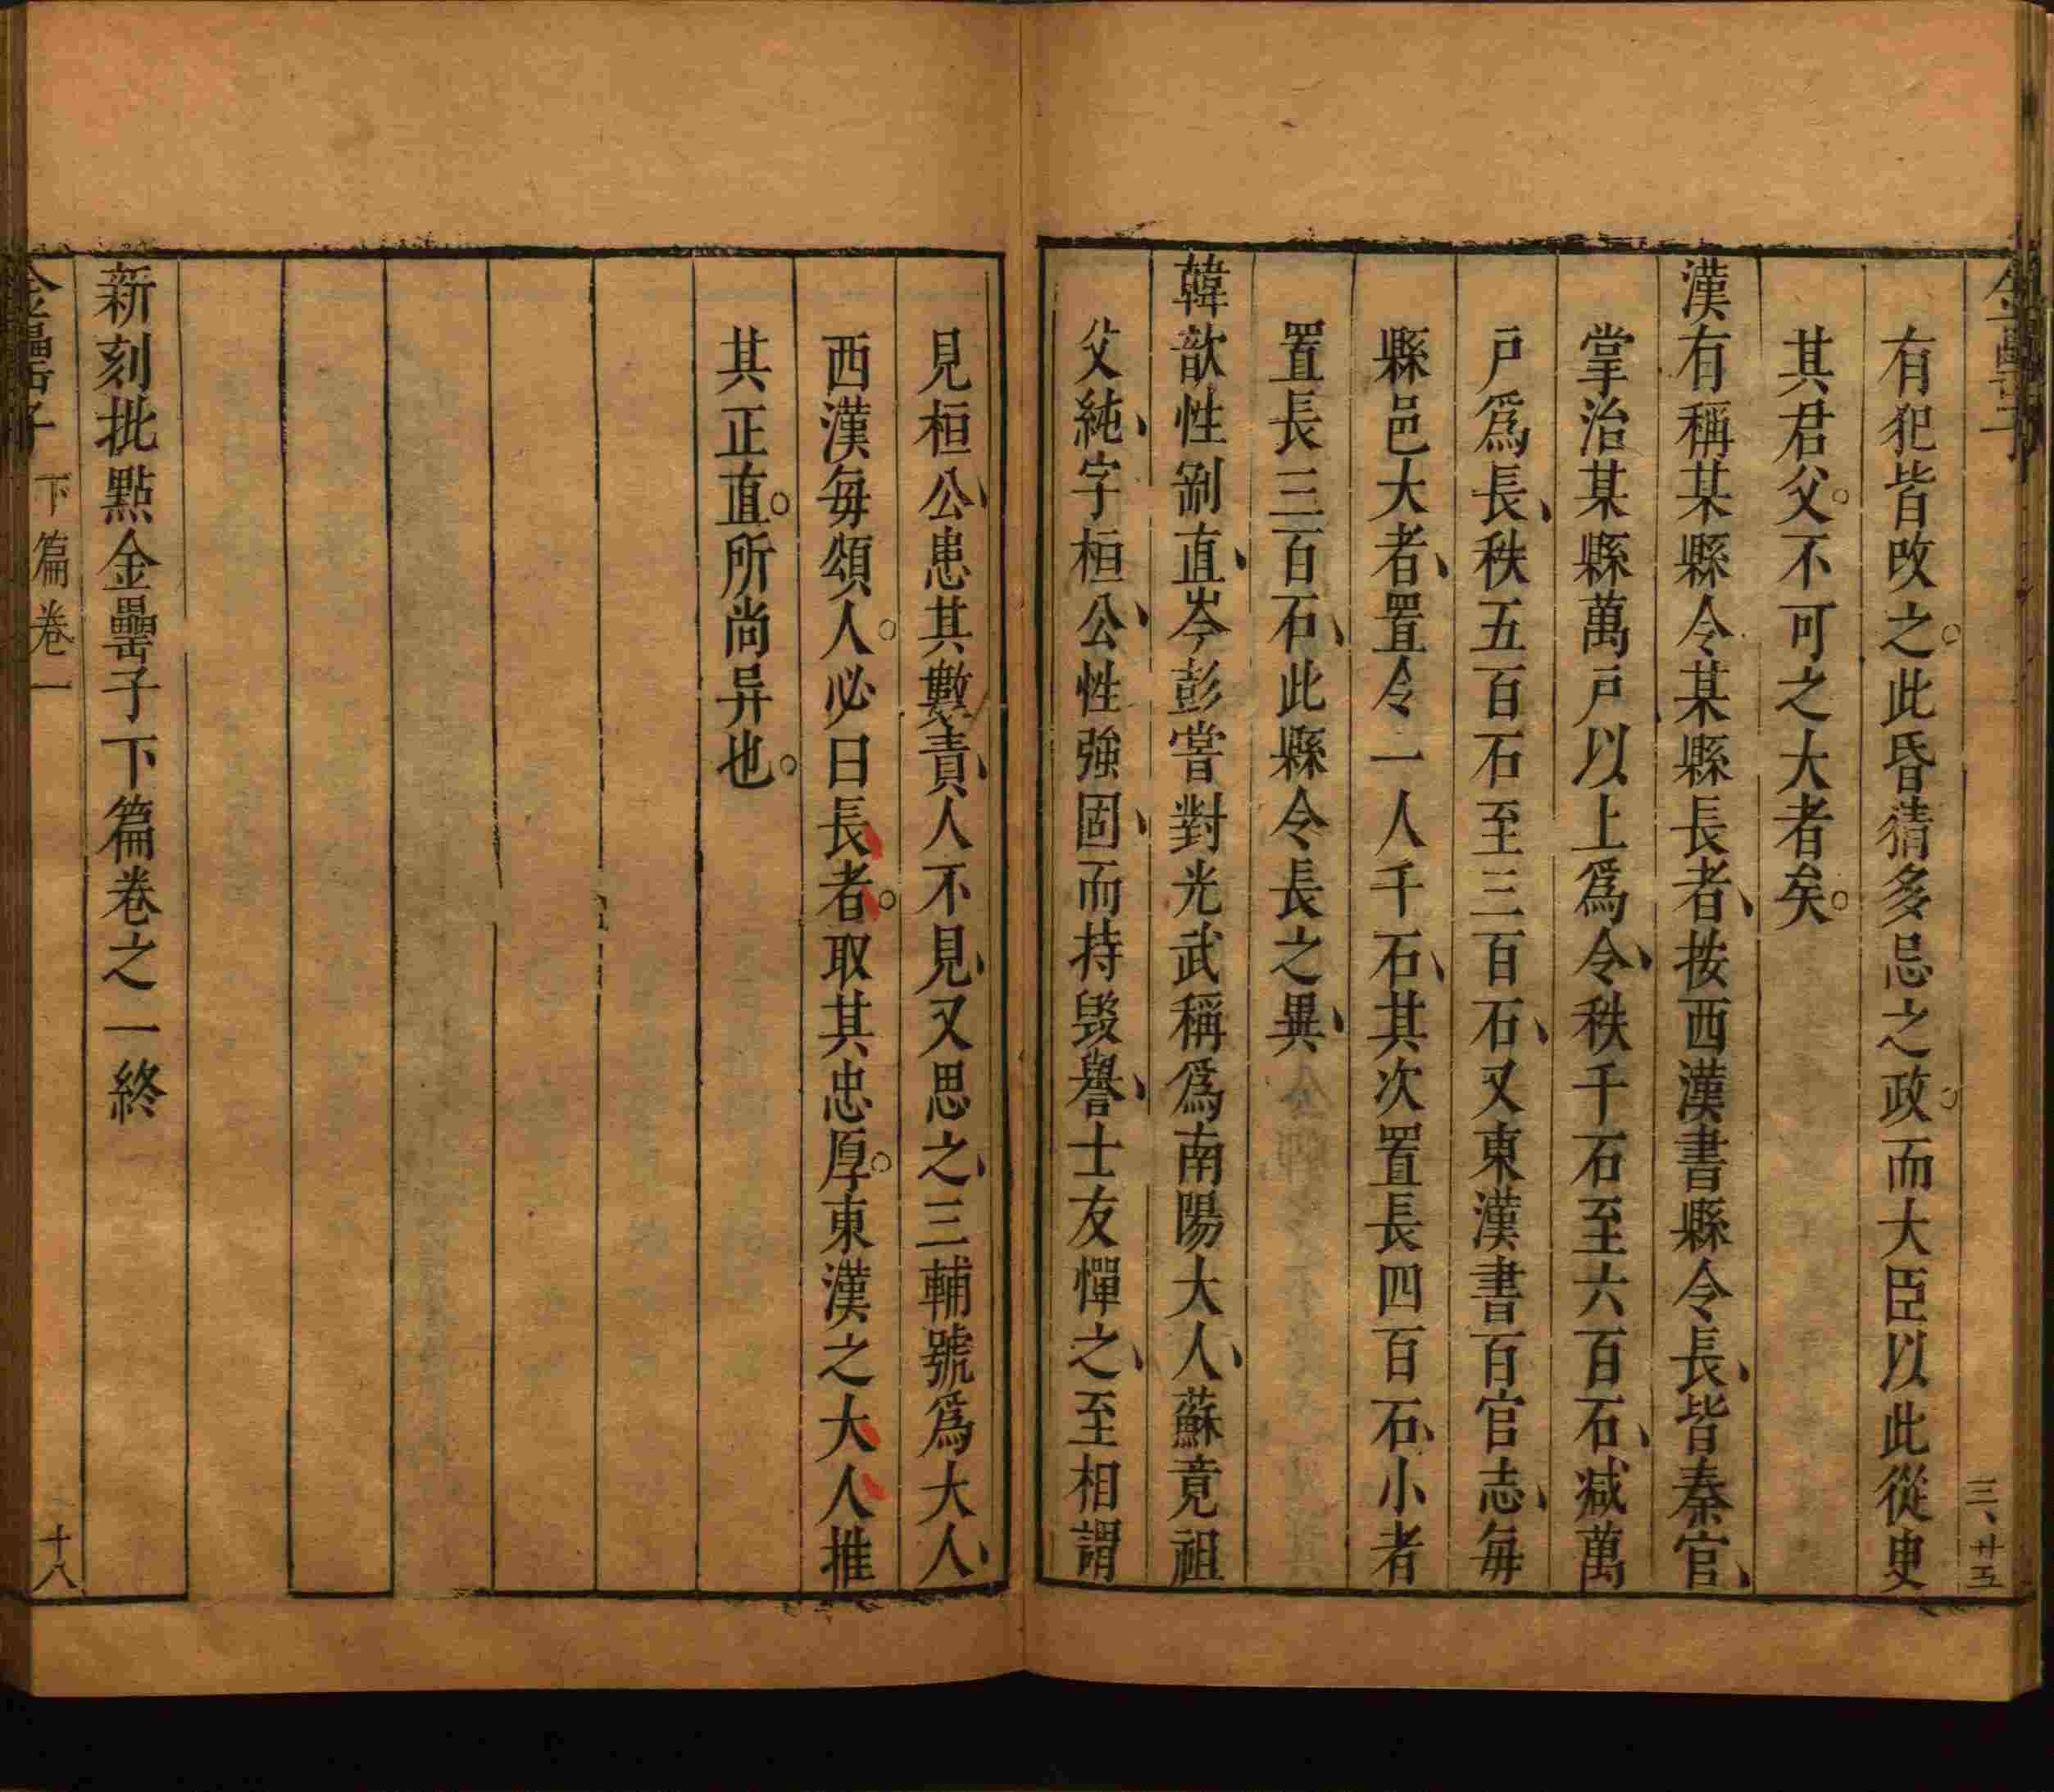 有犯皆改之此昏猜多忌之政而大臣以此從㕜
其君父不可之大者矣
漢有稱某縣令某縣長者按西漢書縣令長皆秦官
掌治某縣萬戶以上爲令秩千石至六百石减萬
戶爲長秩五百石至三百石又東漢書百官志每
縣邑大者置令一人千石其次置長四百石小者
置長三百石此縣令長之異
韓歆性剛直岑彭嘗對光武稱爲南陽大人蘇竟祖
父純字桓公性強固而持毀譽士友憚之至相謂
見桓公患其數責人不見又思之三輔號爲大人
西漢每頌人必曰長者取其忠厚東漢之大人推
其正直所尚异也
新刻批點金罍子下篇卷之一終
金罍子 下篇卷一 十八